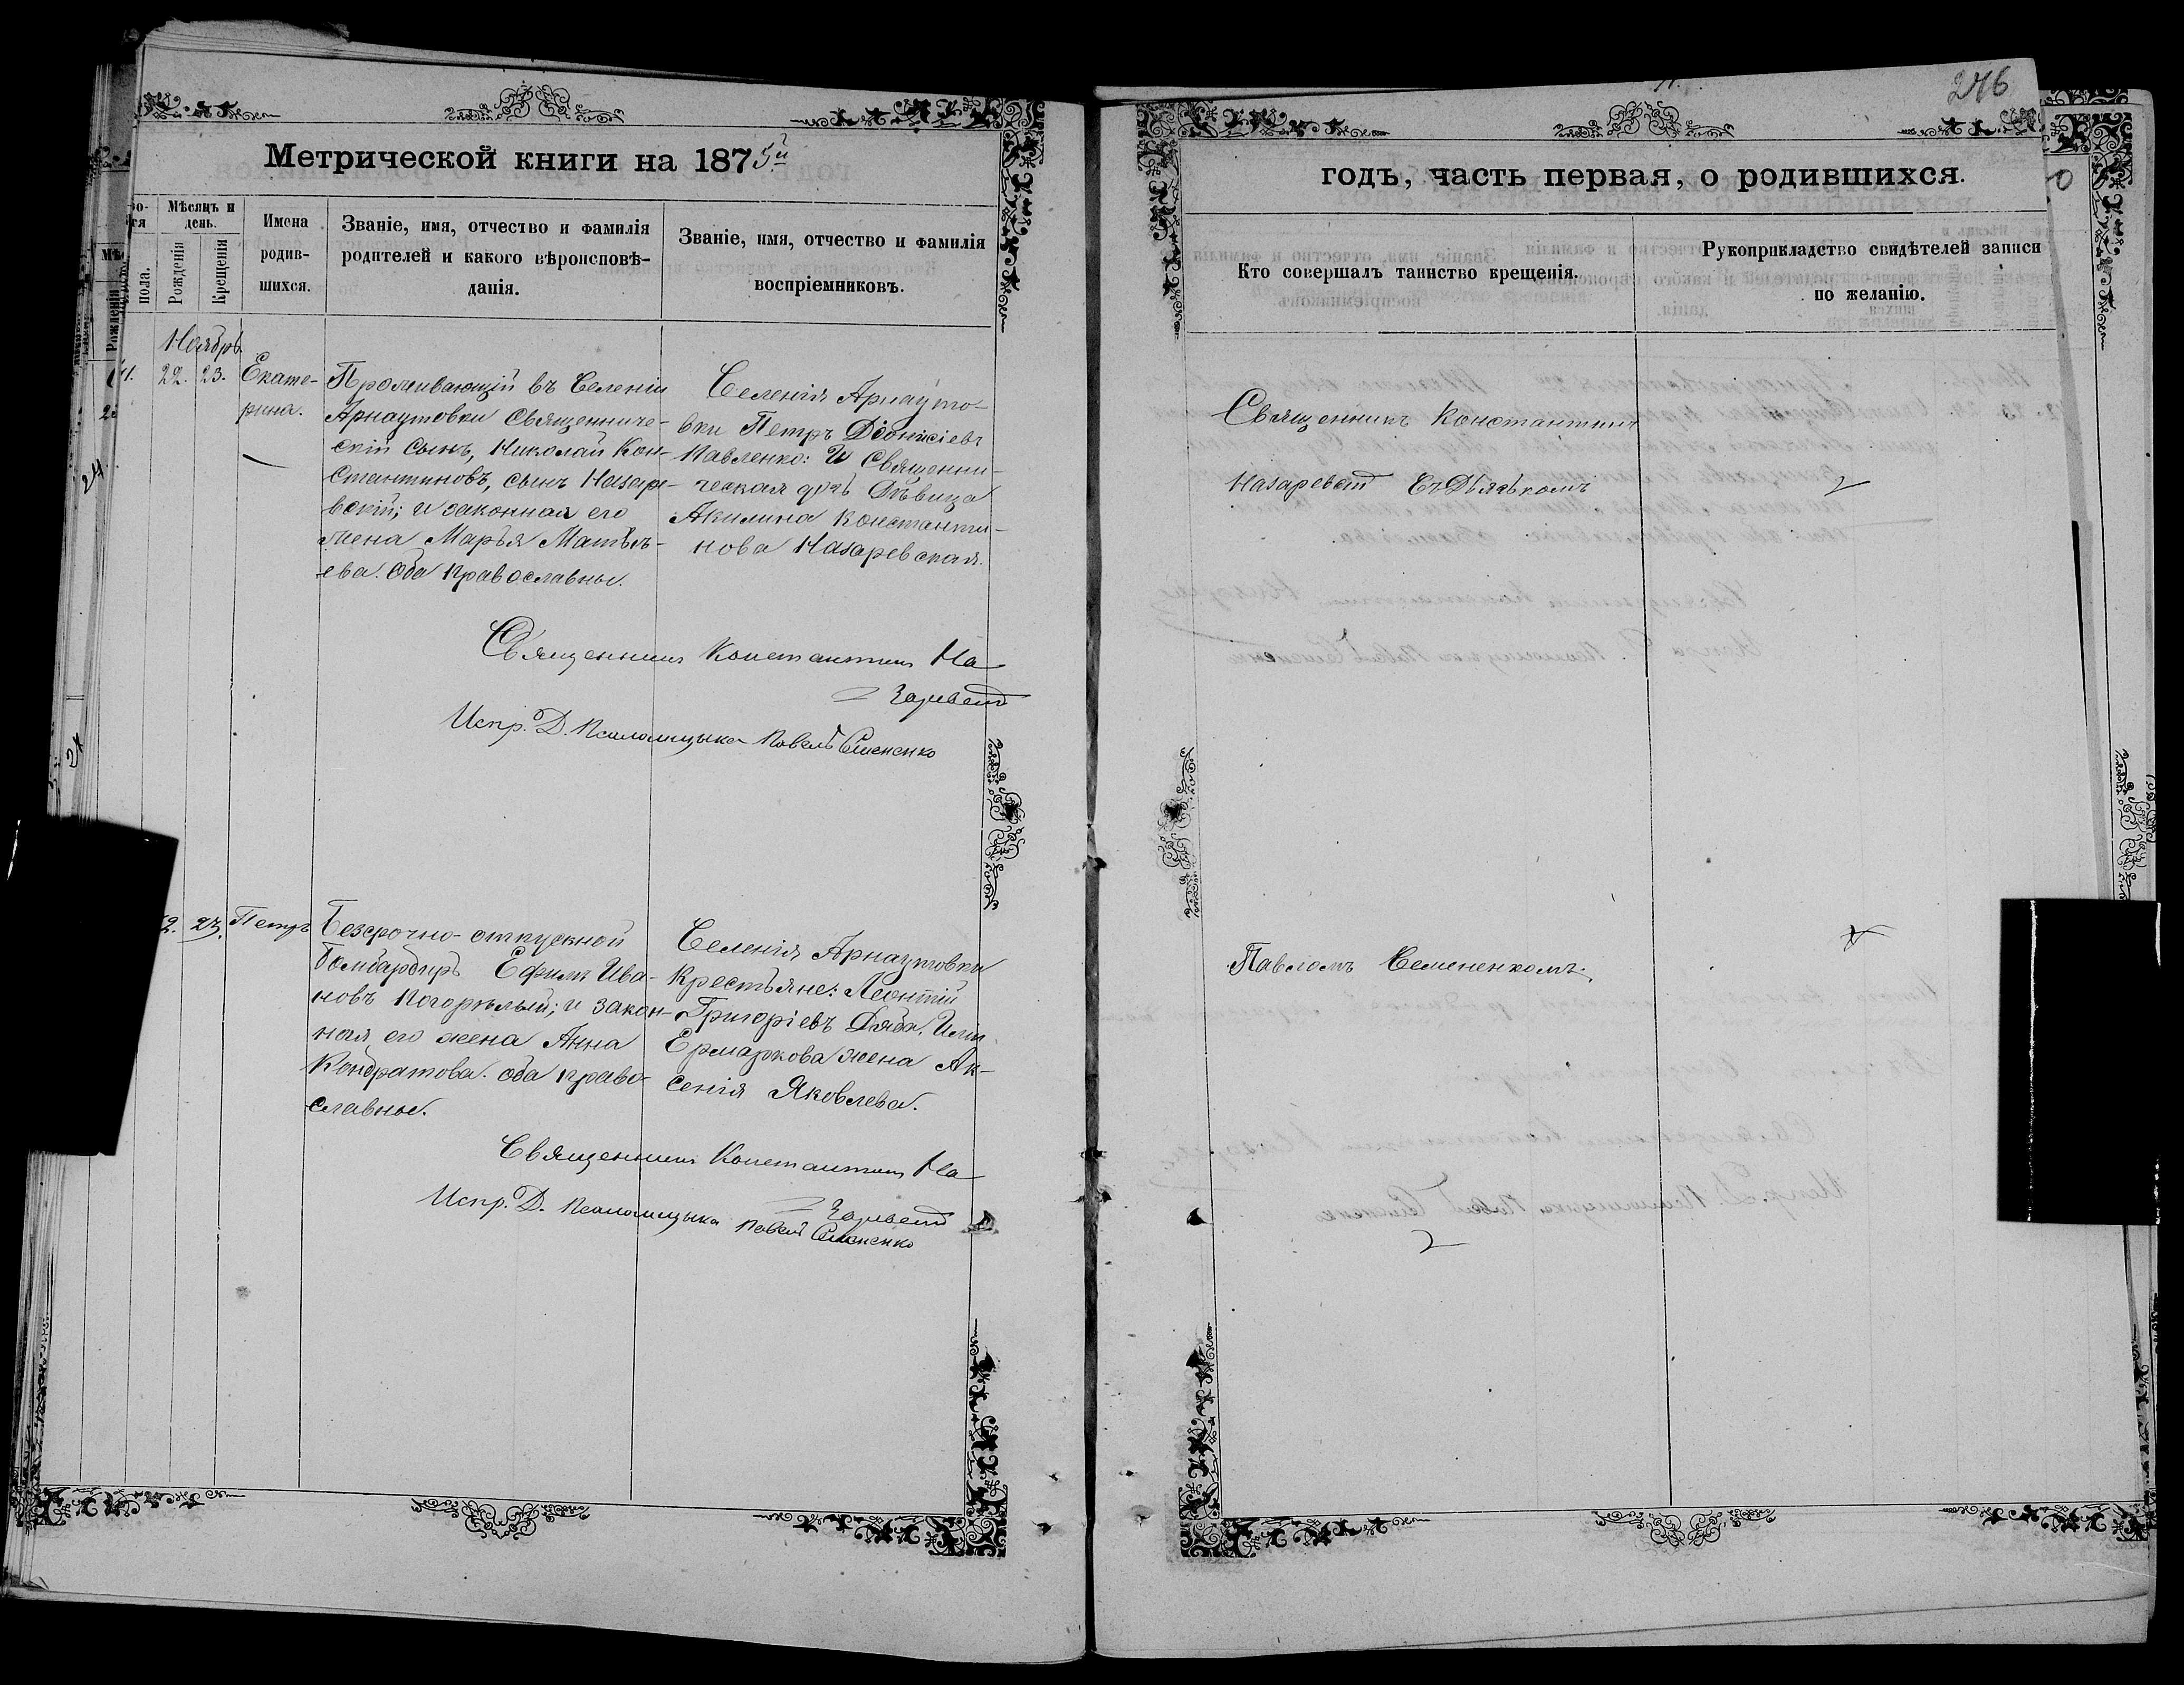 246
Метрической книги на 1875й
годъ, часть первая, о родившихся.
Мѣсяцъ и день.
пола.
Рожденія
Крещенія
Имена родив-шихся.
Званіе, имя, отчество и фамилія
родителей и какого вѣроисповѣ-
данія.
Званіе, имя, отчество и фамилія
воспріемниковъ.
Кто совершалъ таинство крещенія.
Рукоприкладство свидѣтелей записи
по желанію.
Ноябрь.
22. 23. Екате-
рина.
Проживающій въ Селеніи
Арнаутовки Священниче-
скій сынъ, Николай Кон-
стантиновъ, сынъ Назаре-
вскій; и законная его
жена Марья Матвѣ-
ева. Оба православные.
Селенія Арнауто-
вки Петръ Діонисіевъ
Павленко: и Священни-
ческая дочь Дѣвица
Акилина Константи-
нова Назаревская.
Священникъ Константинъ
Назаревскій съ Дьячкомъ
Священникъ Константинъ На-
заревскій
Испр. Д. Псаломщика Павелъ Семененко
23. Петръ
Безсрочно-отпускной
бомбардиръ Ефимъ Ива-
новъ Погорѣлый; и закон-
ная его жена Анна
Кондратова. Оба право-
славные.
Селенія Арнаутовки
Крестьяне: Леонтій
Григоріевъ Дзюба, Или
Ермаркова жена Ак-
сенія Яковлева.
Павломъ Семененкомъ.
Священникъ Константинъ На-
заревскій
Испр. Д. Псаломщика Павелъ Семененко